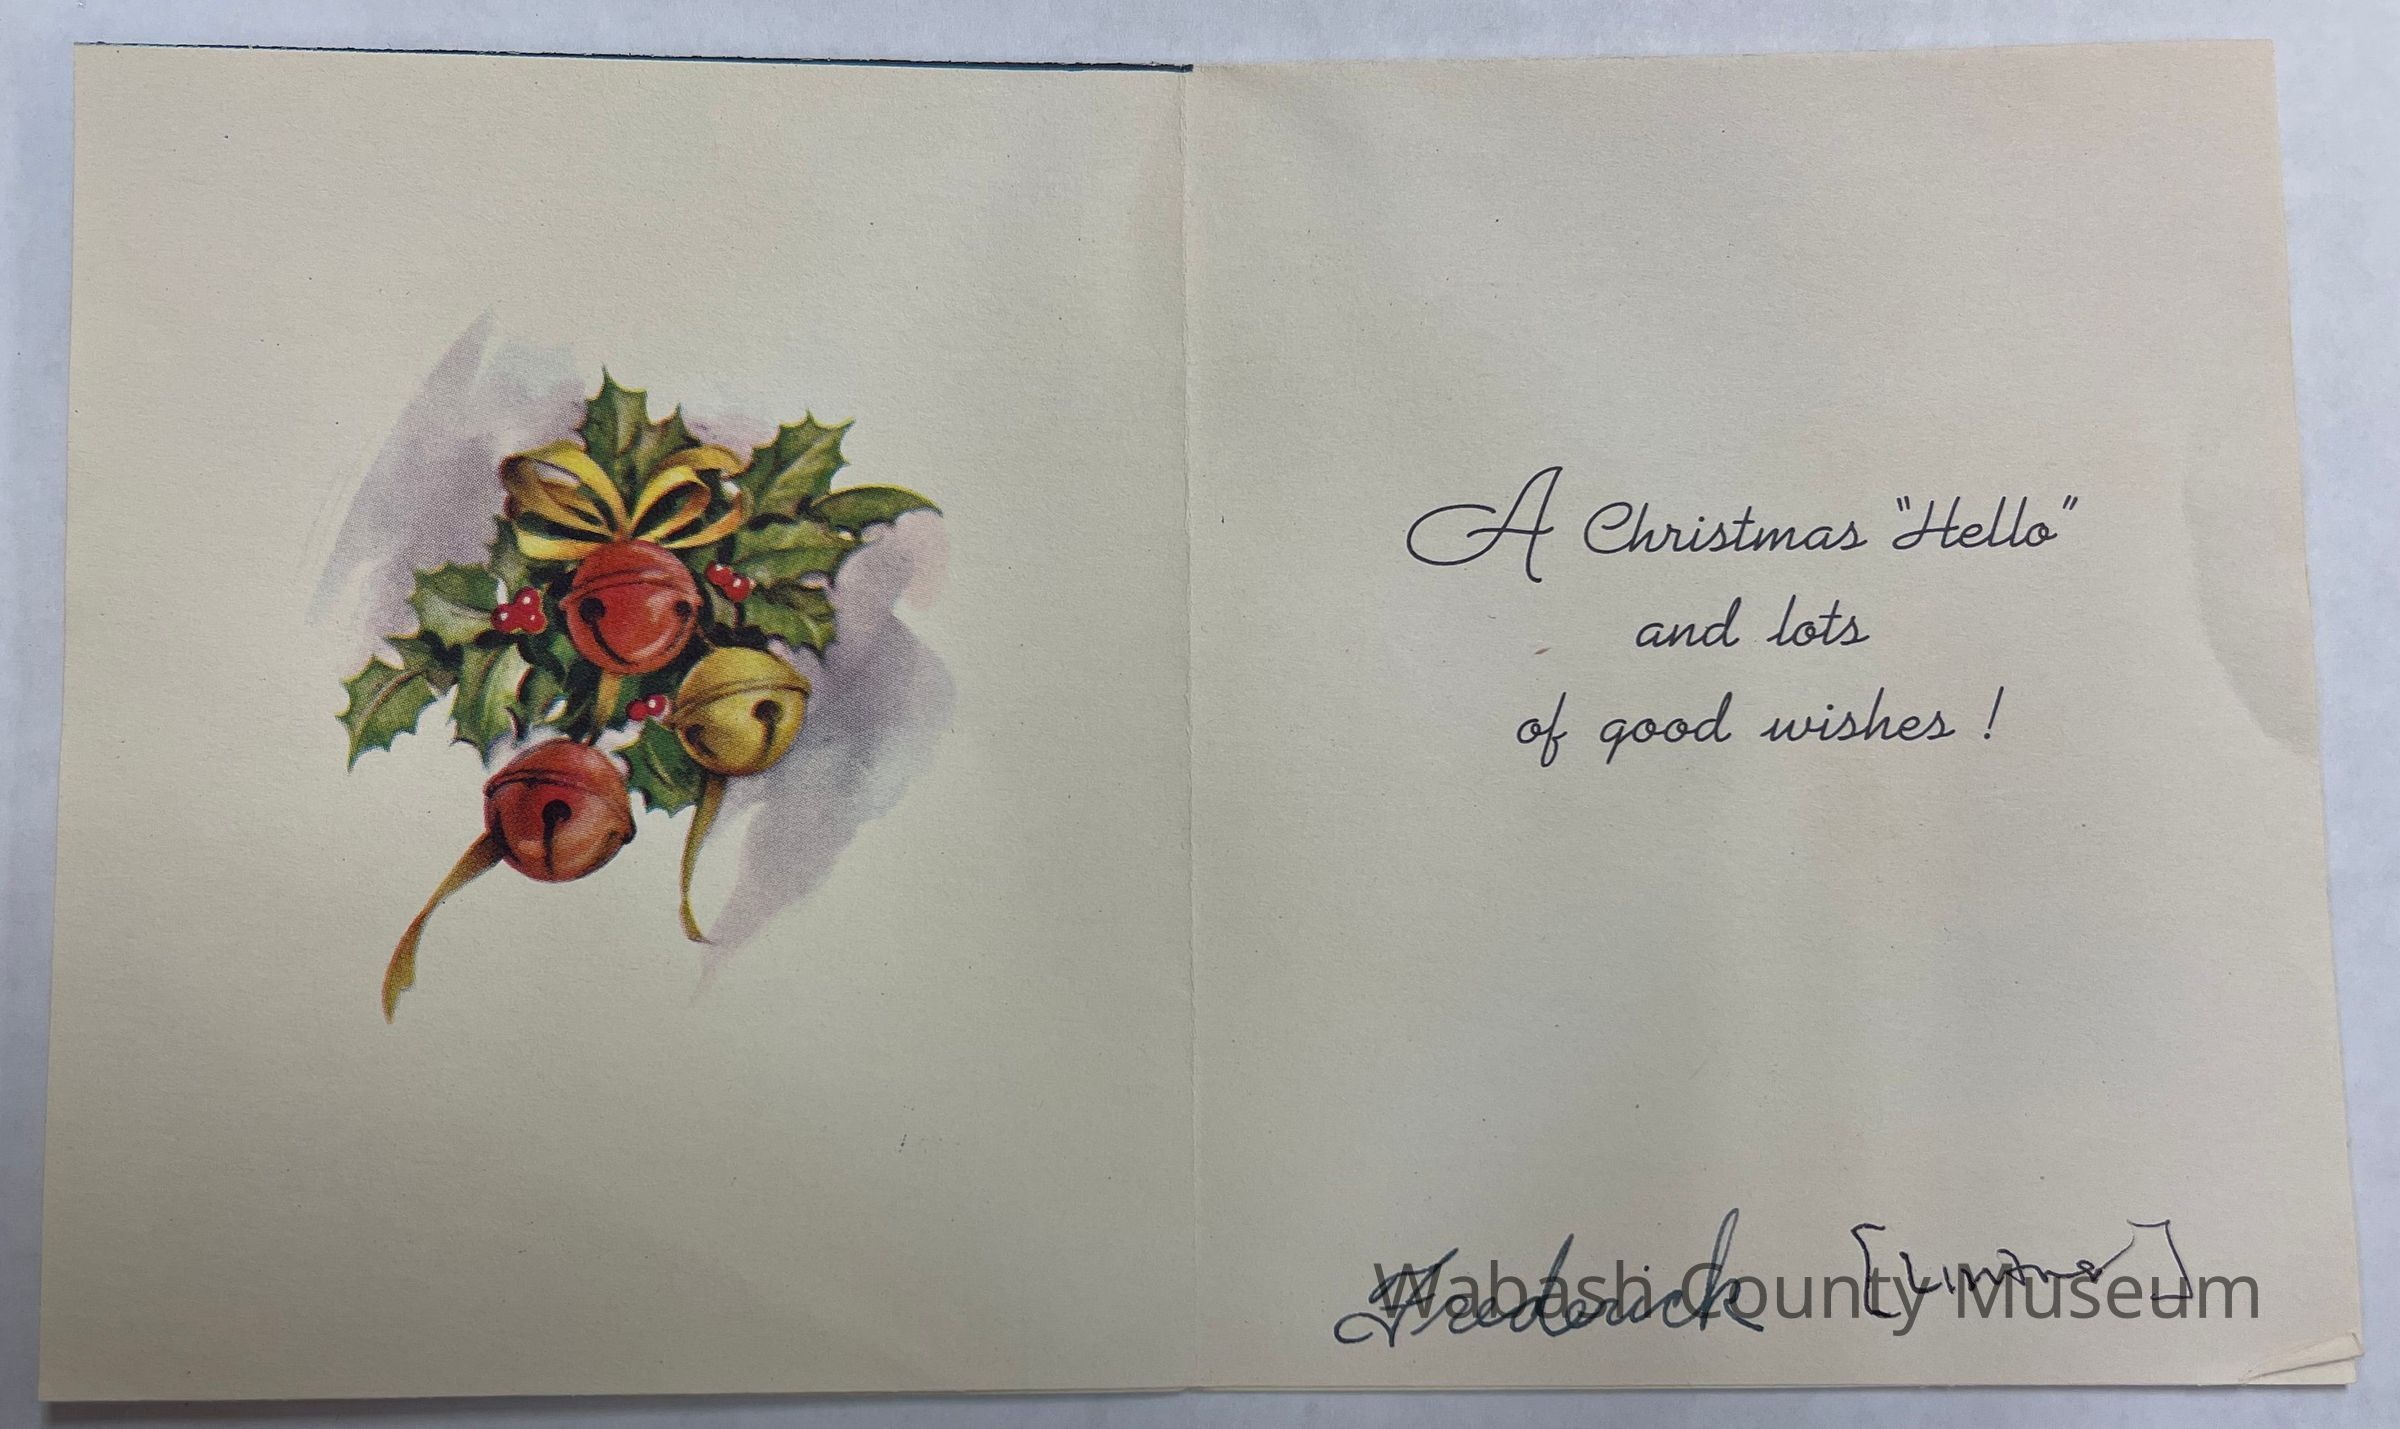 A Christmas "Hello"
and lots
of good wishes !
Frederick
Wabash County Museum